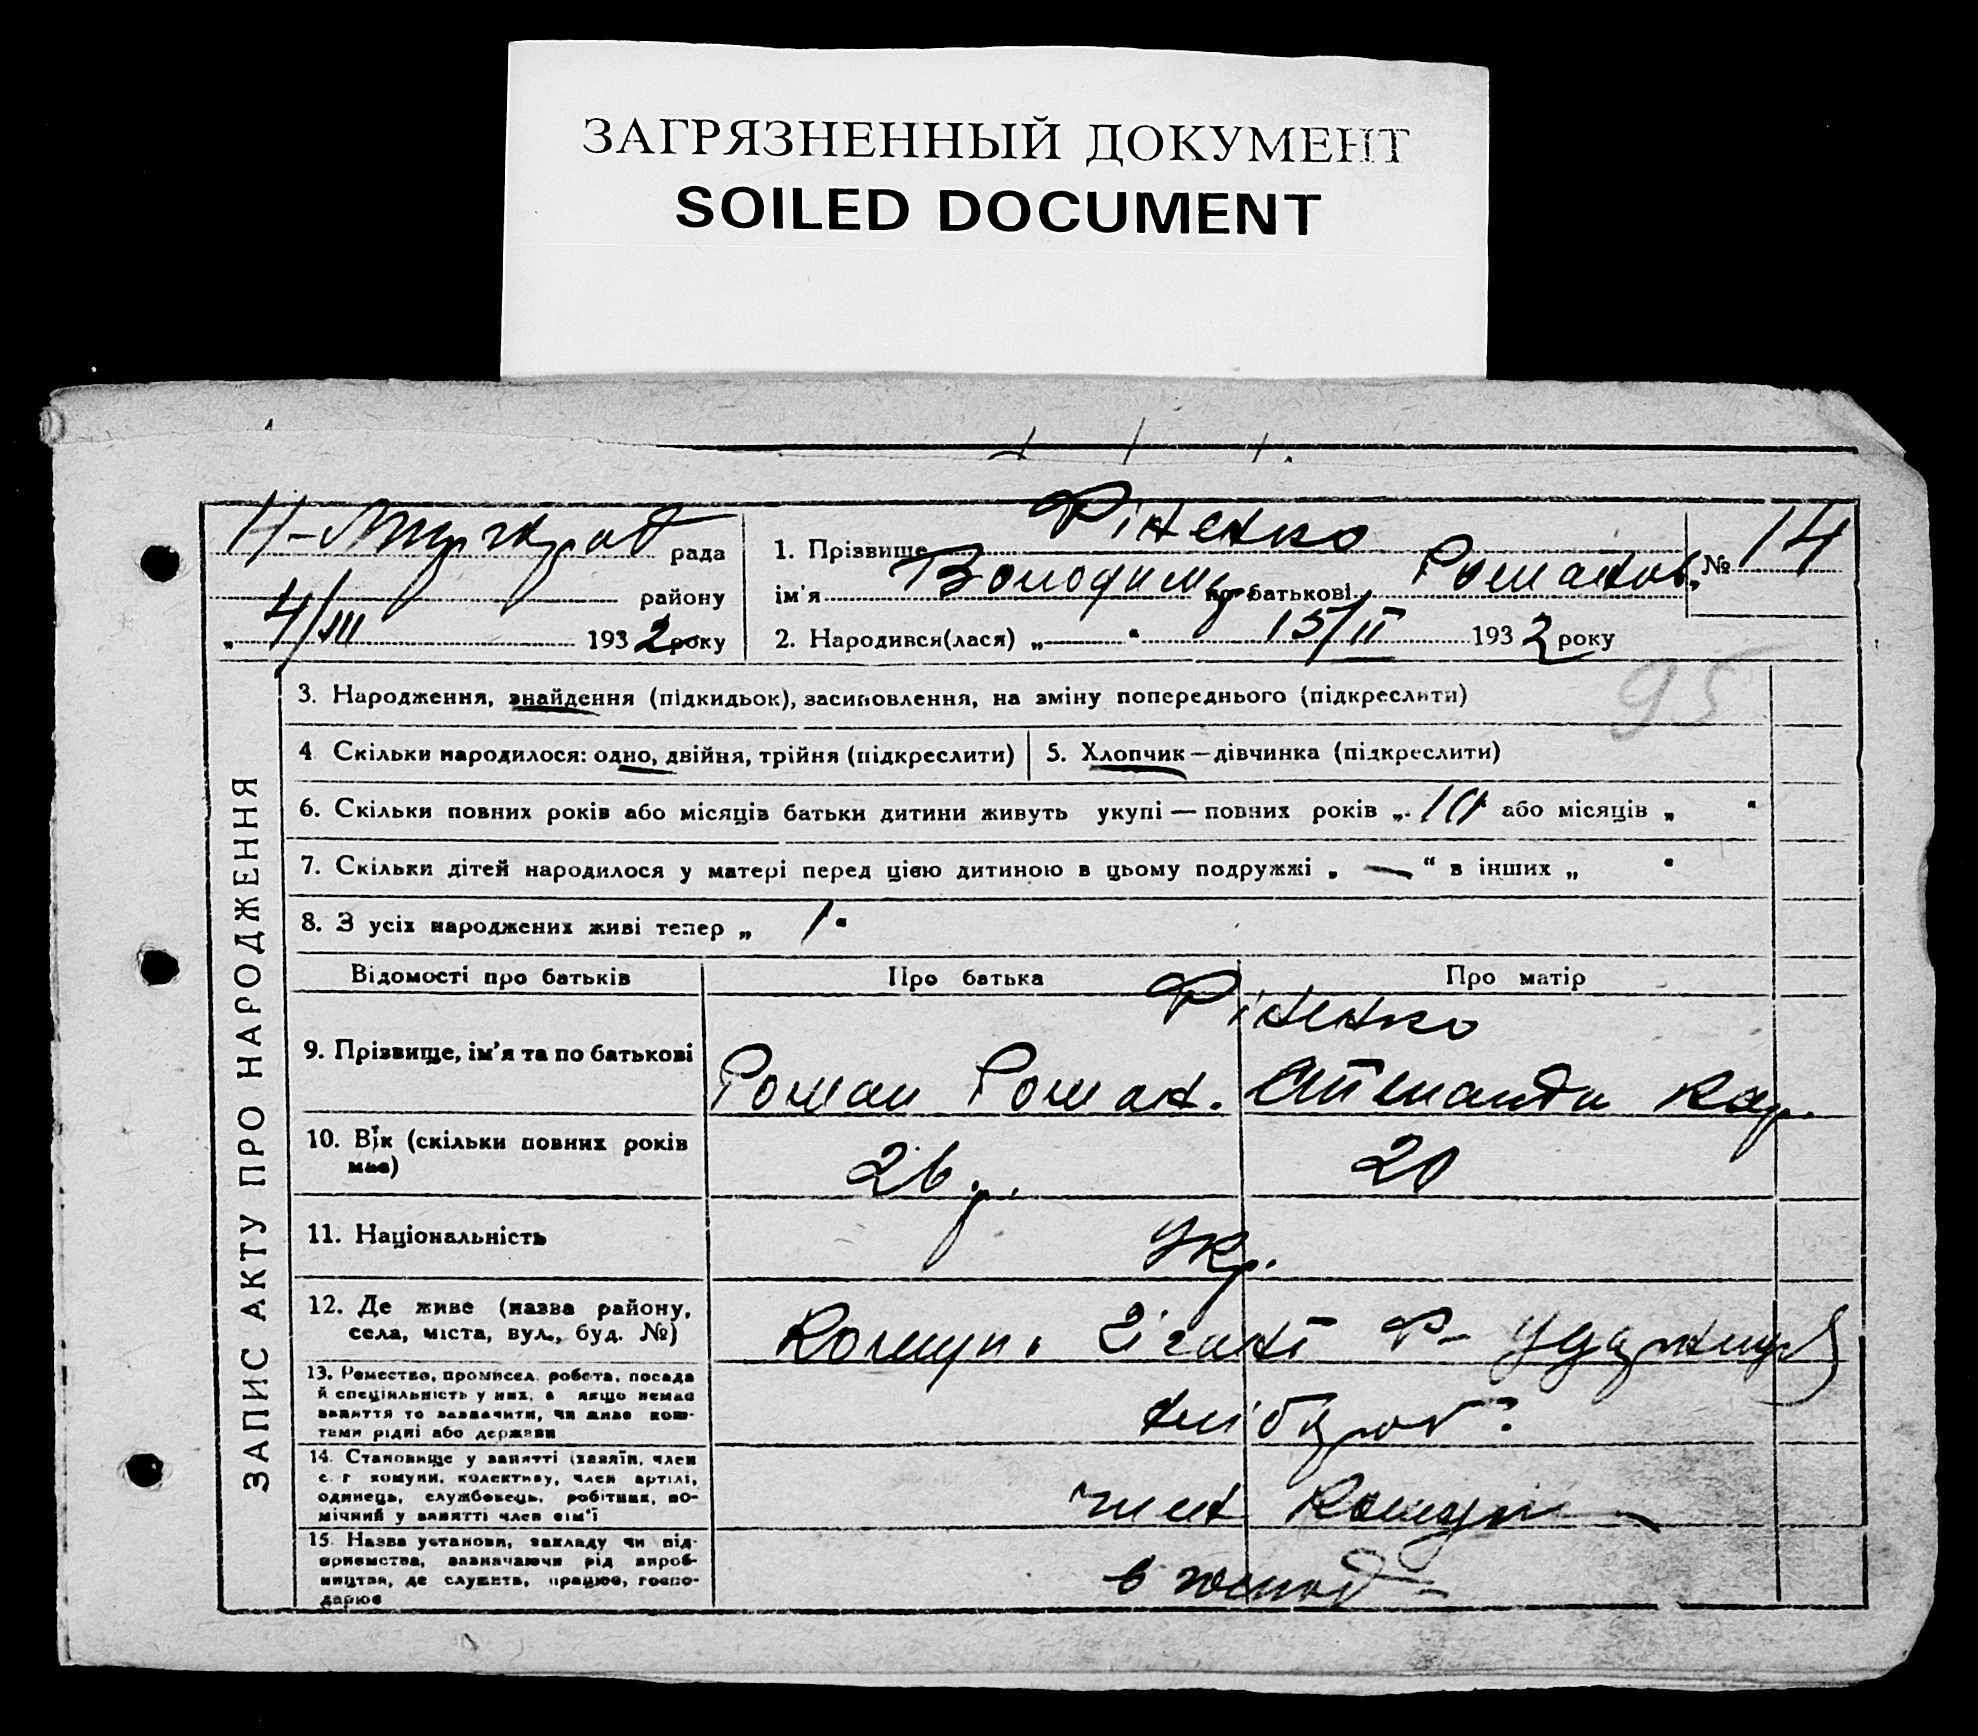 ЗАГРЯЗНЕННЫЙ ДОКУМЕНТ
SOILED DOCUMENT
рада
району
„ 4/III 1932 року
1. Прізвище Фіненко
ім'я Володимир по батькові Романов.
№ 14
2. Народився(лася) „ “ 15/II 1932 року
95
ЗАПИС АКТУ ПРО НАРОДЖЕННЯ
3. Народження, знайдення (підкидьок), засиновлення, на зміну попереднього (підкреслити)
4 Скільки народилося: одно, двійня, трійня (підкреслити)
5. Хлопчик — дівчинка (підкреслити)
6. Скільки повних років або місяців батьки дитини живуть укупі — повних років „ або місяців „ “
7. Скільки дітей народилося у матері перед цією дитиною в цьому подружжі „ — “ в інших „ “
8. З усіх народжених живі тепер „ 1 “
Відомості про батьків
Про батька
Про матір
9. Прізвище, ім'я та по батькові
Фіненко
Роман Роман.
10. Вік (скільки повних років
має)
26 р.
20
11. Національність
Укр.
12. Де живе (назва району,
села, міста, вул., буд. №)
Комун.
13. Ремество, промисел, робота, посада
й спеціяльність у них, а якщо немає
заняття то зазначити, чи живе кош-
тами рідні або держави
хлібороб
14. Становище у занятті (хазяїн, член
с. г комуни, колективу, член артілі,
одинець, службовець, робітник, по-
мічний у занятті член сім'ї
член Комуни
15. Назва установи, закладу чи під-
приємства, зазначаючи рід вироб-
ництва, де служить, працює, госпо-
дарює
в господ